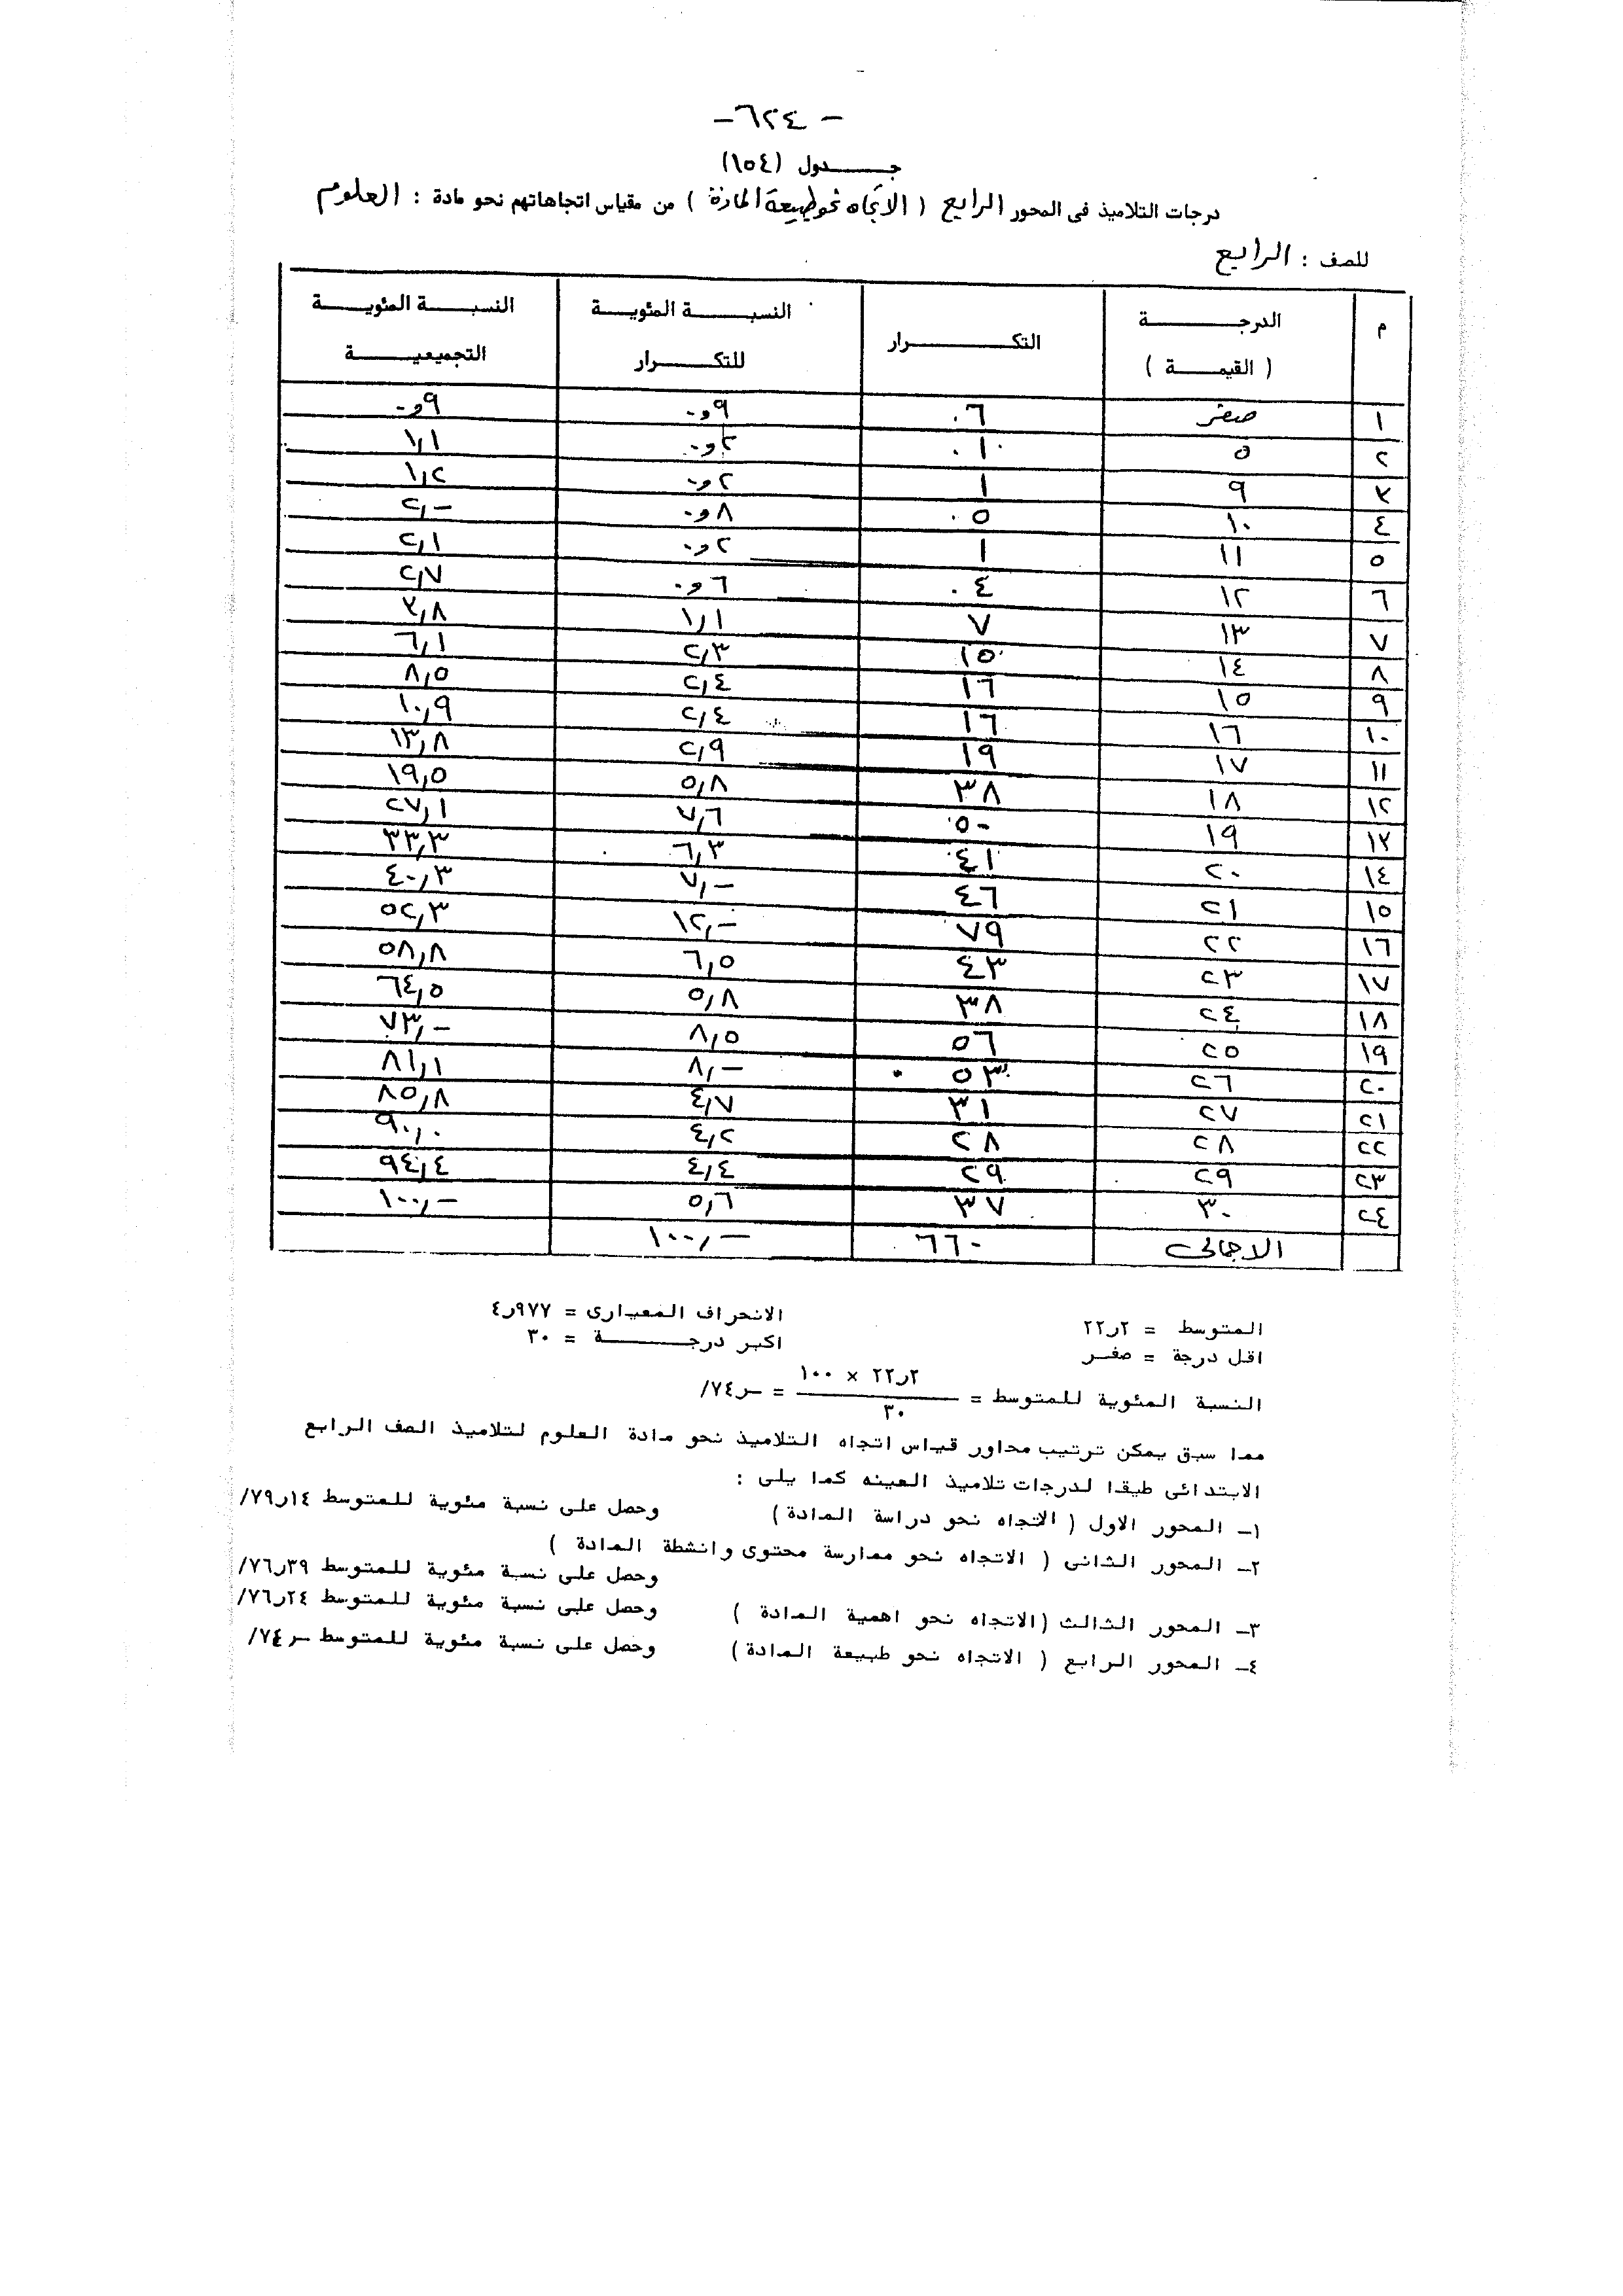 - ٦٢٤ -
جـــــدول (١٥٤)
درجات التلاميذ فى المحور الرابع ( الاتجاه نحو طبيعة المادة ) من مقياس اتجاهاتهم نحو مادة : العلوم
للصف : الرابع
م | الدرجـــــة ( القيمـــة ) | التكـــــرار | النسبـــــة المئويـــة للتكـــــرار | النسبـــــة المئويـــة التجميعيـــــة
١ | صفر | ٠٦ | ٩و٠ | ٩و٠
٢ | ٥ | ٠١ | ٢و٠ | ١,١
٣ | ٩ | ١ | ٢و٠ | ١,٢
٤ | ١٠ | ٠٥ | ٨و٠ | ٢,-
٥ | ١١ | ١ | ٢و٠ | ٢,١
٦ | ١٢ | ٠٤ | ٦و٠ | ٢,٧
٧ | ١٣ | ٧ | ١,١ | ٣,٨
٨ | ١٤ | ١٥ | ٢,٣ | ٦,١
٩ | ١٥ | ١٦ | ٢,٤ | ٨,٥
١٠ | ١٦ | ١٦ | ٢,٤ | ١٠,٩
١١ | ١٧ | ١٩ | ٢,٩ | ١٣,٨
١٢ | ١٨ | ٣٨ | ٥,٨ | ١٩,٥
١٣ | ١٩ | ٥٠ | ٧,٦ | ٢٧,١
١٤ | ٢٠ | ٤١ | ٦,٣ | ٣٣,٣
١٥ | ٢١ | ٤٦ | ٧,- | ٤٠,٣
١٦ | ٢٢ | ٧٩ | ١٢,- | ٥٢,٣
١٧ | ٢٣ | ٤٣ | ٦,٥ | ٥٨,٨
١٨ | ٢٤ | ٣٨ | ٥,٨ | ٦٤,٥
١٩ | ٢٥ | ٥٦ | ٨,٥ | ٧٣,-
٢٠ | ٢٦ | ٥٣ | ٨,- | ٨١,١
٢١ | ٢٧ | ٣١ | ٤,٧ | ٨٥,٨
٢٢ | ٢٨ | ٢٨ | ٤,٢ | ٩٠,٠
٢٣ | ٢٩ | ٢٩ | ٤,٤ | ٩٤,٤
٢٤ | ٣٠ | ٣٧ | ٥,٦ | ١٠٠,-
الاجمالى | ٦٦٠ | ١٠٠,-
المتوسط = ٢ر٢٢ الانحراف المعيارى = ٩٧٧ر٤
اقل درجة = صفـر اكبر درجـــــة = ٣٠
النسبة المئوية للمتوسط = ٢ر٢٢ × ١٠٠ / ٣٠ = ـر٧٤/
مما سبق يمكن ترتيب محاور قياس اتجاه التلاميذ نحو مادة العلوم لتلاميذ الصف الرابع
الابتدائى طبقا لدرجات تلاميذ العينه كما يلى :
١ـ المحور الاول ( الاتجاه نحو دراسة المادة ) وحصل على نسبة مئوية للمتوسط ١٤ر٧٩/
٢ـ المحور الثانى ( الاتجاه نحو ممارسة محتوى وانشطة المادة )
وحصل على نسبة مئوية للمتوسط ٣٩ر٧٦/
٣ـ المحور الثالث (الاتجاه نحو اهمية المادة ) وحصل على نسبة مئوية للمتوسط ٢٤ر٧٦/
٤ـ المحور الرابع ( الاتجاه نحو طبيعة المادة ) وحصل على نسبة مئوية للمتوسط ـر٧٤/